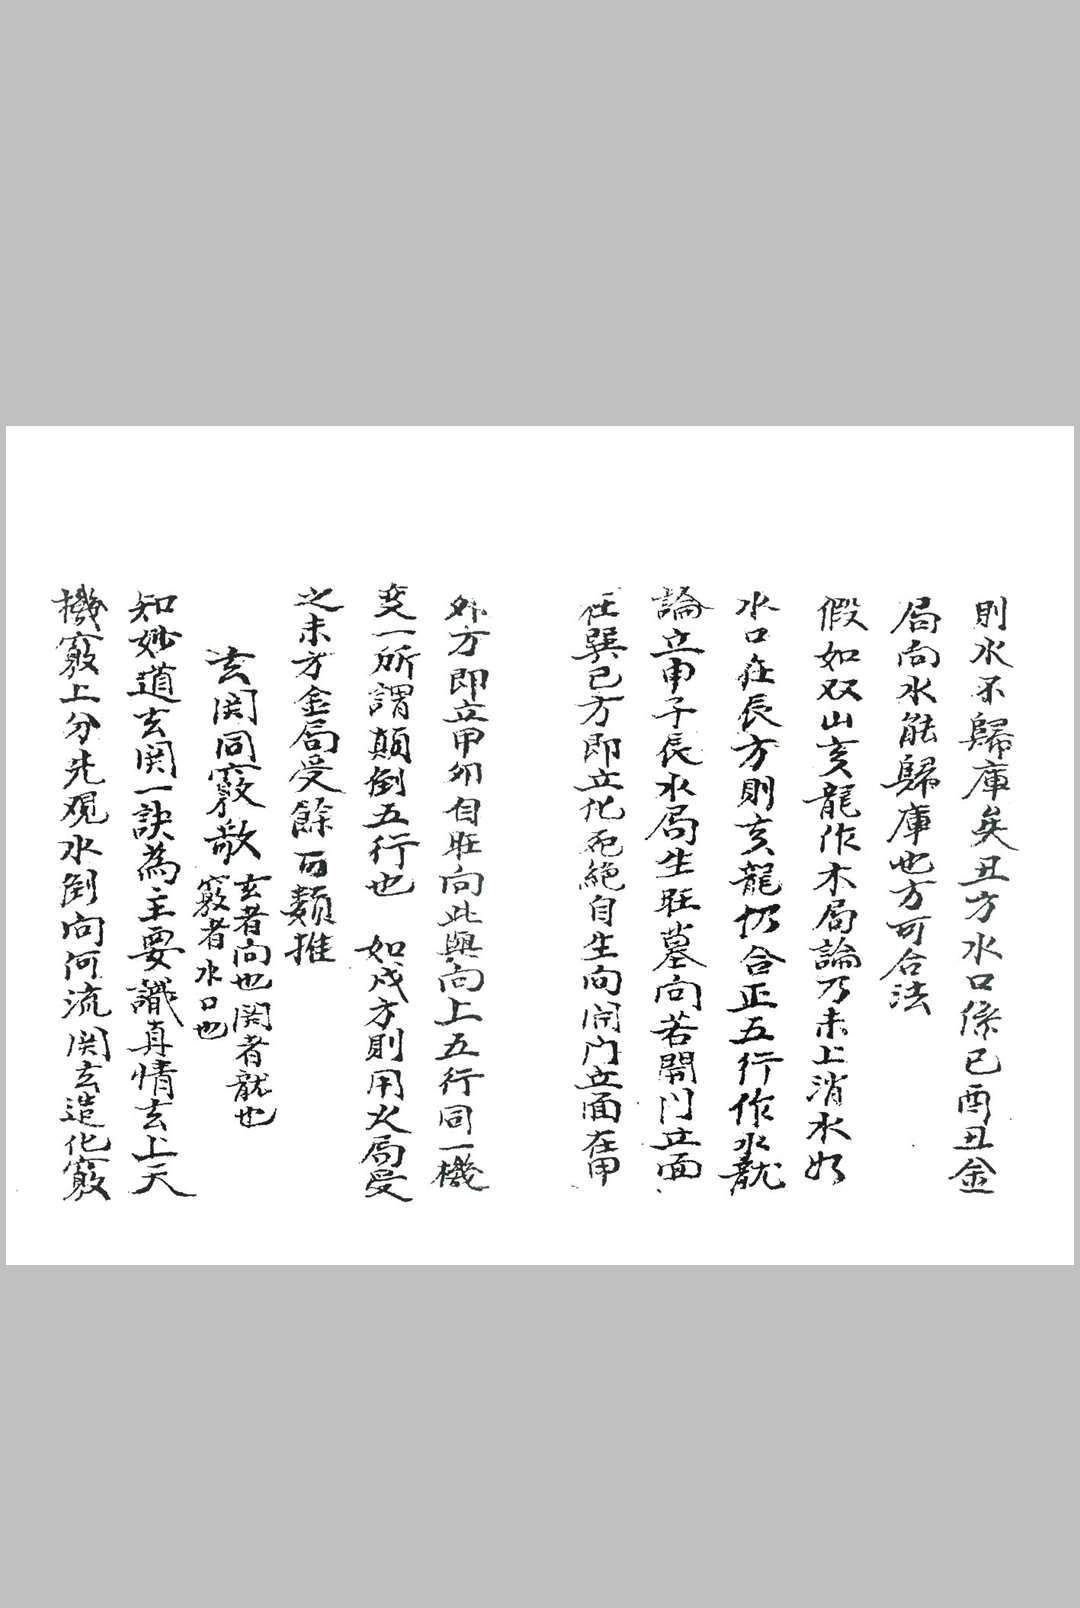 則水不歸庫矣丑方水口係巳酉丑金
局向水能歸庫也方可合法
假如双山亥龍作木局論乃未上消水如
水口在辰方則亥龍仍合正五行作水龍
論立申子辰水局生旺墓向若開门立面
在巽巳方即立化死絕自生向開门立面在甲
外方即立甲卯自旺向此與向上五行同一機
変一所謂顛倒五行也　如戍方則用火局受
之未方金局受餘可類推
玄関同竅
玄者向也関者龍也
竅者水口也
知妙道玄関一訣為主要識真情玄上天
機竅上分先观水倒向何流関玄造化竅